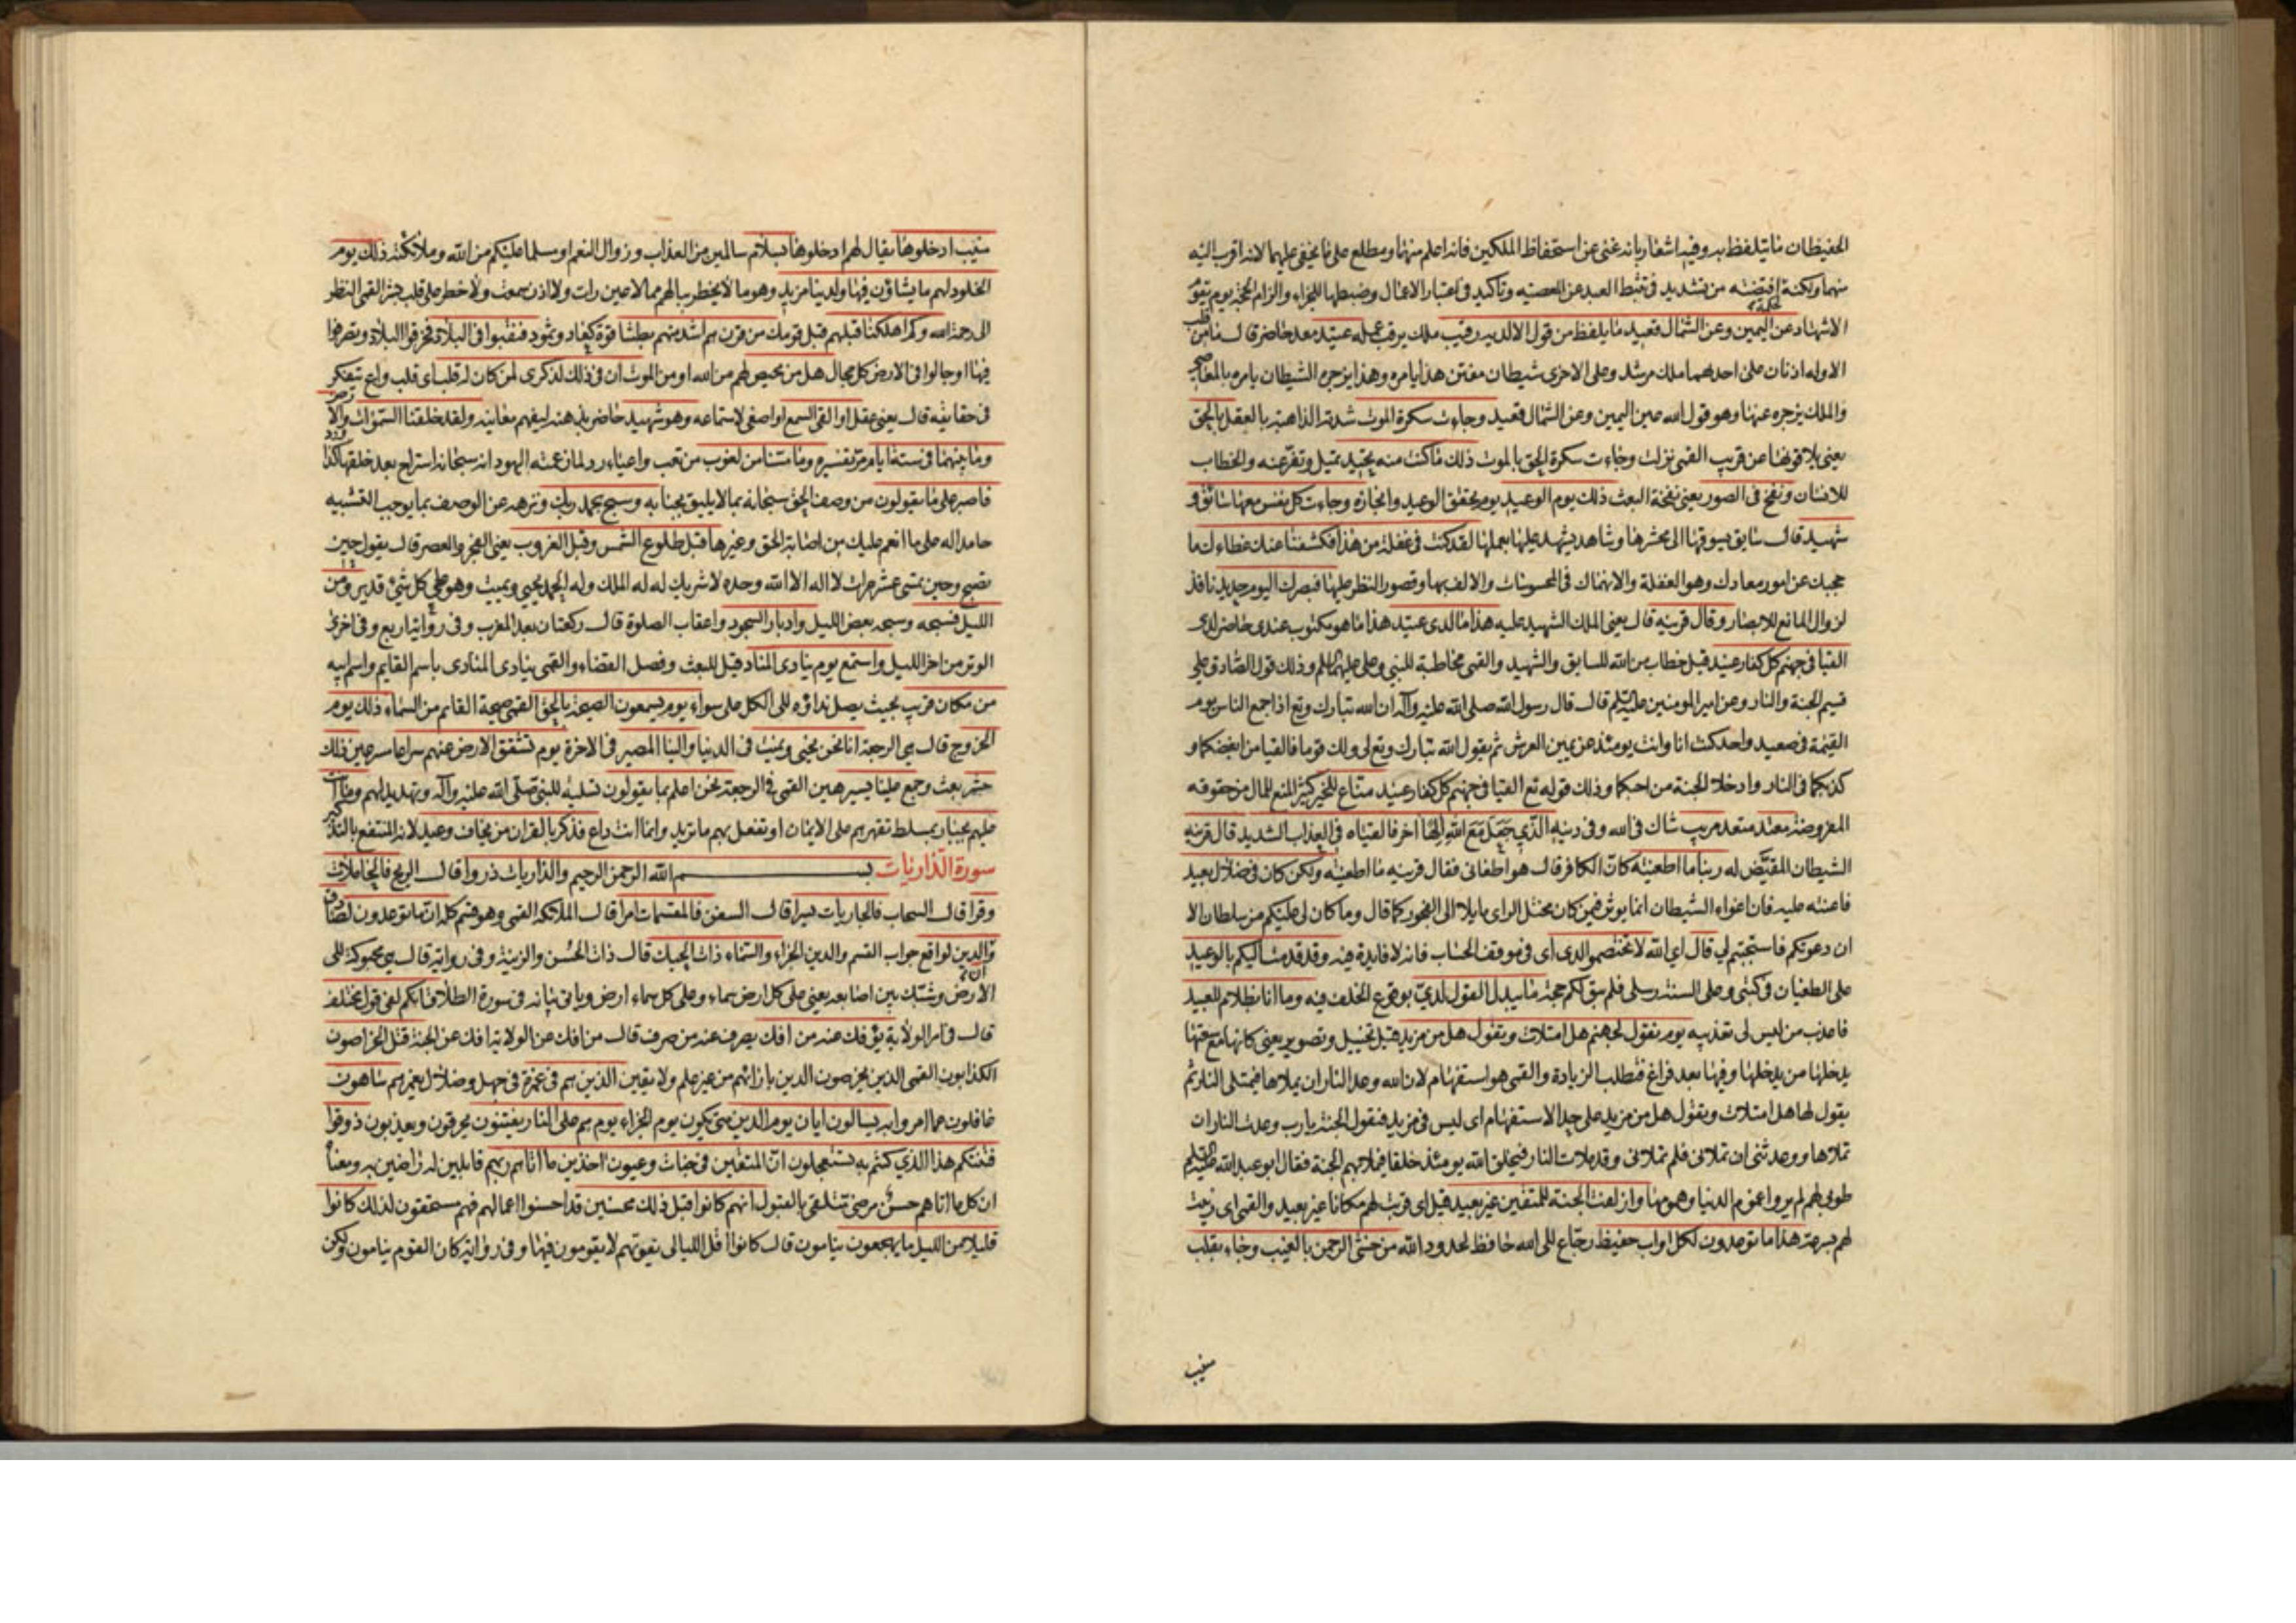 الحفيظان ما يتلفظ به وفيه اشعار بانه غنى عن استحفاظ الملكين فانه اعلم منهما ومطلع على ما يخفى عليهما لانه اقرب اليه
منهما ولكنه لحكمة اقتضته من تشديد فى تثبط العبد عن المعصيه وتاكيد فى اعتبار الاعمال وضبطها للجزاء والزام الحجة يوم يقوم
الاشهاد عن اليمين وعن الشمال قعيد ما يلفظ من قول الا لديه رقيب ملك يرقب عمله عتيد معد حاضر قال ما من قلب
الا وله اذنان على احدهما ملك مرشد وعلى الاخرى شيطان مفتن هذا يامره وهذا يزجره الشيطان يامره بالمعاصى
والملك يزجره عنها وهو قول الله عن اليمين وعن الشمال قعيد وجاءت سكرة الموت شدته الذاهبة بالعقل بالحق
يعنى يلاقونها عن قريب القمى نزلت وجاءت سكرة الحق بالموت ذلك ما كنت منه تحيد تميل وتفر عنه والخطاب
للانسان ونفخ فى الصور يعنى نفخة البعث ذلك يوم الوعيد يوم تحقق الوعيد وانجازه وجاءت كل نفس معها سائق و
شهيد قال سايق يسوقها الى محشرها وشاهد يشهد عليها بعملها لقد كنت فى غفلة من هذا فكشفنا عنك غطاءك ما
حجبك عن امور معادك وهو الغفلة والانهماك فى المحسوسات والالف بها وقصور النظر عليها فبصرك اليوم حديد نافذ
لزوال المانع للابصار وقال قرينه قال يعنى الملك الشهيد عليه هذا ما لدى عتيد هذا ما هو مكتوب عندى حاضر لدى
القيا فى جهنم كل كفار عنيد قيل خطاب من الله للسايق والشهيد والقمى مخاطبة للنبى وعلى عليهما السلم وذلك قول الصادق على
قسيم الجنة والنار وعن امير المومنين عليه السلم قال قال رسول الله صلى الله عليه وآله ان الله تبارك وتع اذا جمع الناس يوم
القيمة فى صعيد واحد كنت انا وانت يومئذ عن يمين العرش ثم يقول الله تبارك وتعالى لى ولك قوما فالقيا من ابغضكما و
كذبكما فى النار وادخلا الجنة من احبكما وذلك قوله تع القيا فى جهنم كل كفار عنيد مناع للخير كثير المنع للمال عن حقوقه
المفروضة معتد متعد مريب شاك فى الله وفى دينه الذى جعل مع الله الها اخر فالقياه فى العذاب الشديد قال قرينه
الشيطان المقيض له ربنا ما اطغيته كان الكافر قال هو اطغانى فقال قرينه ما اطغيته ولكن كان فى ضلال بعيد
فاعنته عليه فان اغواء الشيطان انما يوثر فيمن كان مختل الراى مايلا الى الفجور كما قال وما كان لى عليكم من سلطان الا
ان دعوتكم فاستجبتم لى قال اى الله لا تختصموا لدى اى فى موقف الحساب فانه لا فايدة فيه وقد قدمت اليكم بالوعيد
على الطغيان فى كتبى وعلى السنة رسلى فلم يبق لكم حجة ما يبدل القول لدى بوقوع الخلف فيه وما انا بظلام للعبيد
فاعذب من ليس لى تعذيبه يوم نقول لجهنم هل امتلات وتقول هل من مزيد قيل تخييل وتصوير يعنى كانها مع سعتها
يدخلها من يدخلها وفيها بعد فراغ فتطلب الزيادة والقمى هو استفهام لان الله وعد النار ان يملاها فتمتلى النار ثم
يقول لها هل امتلات وتقول هل من مزيد على حد الاستفهام اى ليس فى مزيد فتقول الجنة يا رب وعدت النار ان
تملاها ووعدتنى ان تملانى فلم تملانى وقد ملات النار فيخلق الله يومئذ خلقا فيملا بهم الجنة فقال ابو عبد الله عليه السلم
طوبى لهم لم يروا غموم الدنيا وهمومها وازلفت الجنة للمتقين غير بعيد قيل اى قربت لهم مكانا غير بعيد والقمى اى زينت
لهم بسرعة هذا ما توعدون لكل اواب حفيظ رجاع الى الله حافظ لحدود الله من خشى الرحمن بالغيب وجاء بقلب
منيب
منيب ادخلوها يقال لهم ادخلوها بسلام سالمين من العذاب وزوال النعم او مسلما عليكم من الله وملائكته ذلك يوم
الخلود لهم ما يشاؤن فيها ولدينا مزيد وهو ما لا يخطر ببالهم مما لا عين رات ولا اذن سمعت ولا خطر على قلب بشر القمى النظر
الى رحمة الله وكم اهلكنا قبلهم قبل قومك من قرن هم اشد منهم بطشا قوة كعاد وثمود فنقبوا فى البلاد فخرقوا البلاد وتصرفوا
فيها او جالوا فى الارض كل مجال هل من محيص لهم من الله او من الموت ان فى ذلك لذكرى لمن كان له قلب اى قلب واع يتفكر
فى حقايقه قال يعنى عقل او القى السمع او اصغى لاستماعه وهو شهيد حاضر بذهنه ليفهم معانيه ولقد خلقنا السموات والارض
وما بينهما فى ستة ايام مر تفسيره وما مسنا من لغوب من تعب واعياء رد لما زعمته اليهود انه سبحانه استراح بعد خلقها كذا ورد
فاصبر على ما يقولون من وصف الحق سبحانه بما لا يليق بجنابه وسبح بحمد ربك ونزهه عن الوصف بما يوجب التشبيه
حامدا له على ما انعم عليك من اصابة الحق وغيرها قبل طلوع الشمس وقبل الغروب يعنى الفجر والعصر قال يقول حين
يصبح وحين يمسى عشر مرات لا اله الا الله وحده لا شريك له له الملك وله الحمد يحيى ويميت وهو على كل شىء قدير ومن
الليل فسبحه وسبحه بعض الليل وادبار السجود واعقاب الصلوة قال ركعتان بعد المغرب وفى رواية اربع وفى اخرى
الوتر من اخر الليل واستمع يوم ينادى المناد قيل للبعث وفصل القضاء والقمى ينادى المنادى باسم القايم واسم ابيه
من مكان قريب بحيث يصل نداؤه الى الكل على سواء يوم يسمعون الصيحة بالحق القمى صيحة القايم من السماء ذلك يوم
الخروج قال هى الرجعة انا نحن نحيى ونميت فى الدنيا والينا المصير فى الاخرة يوم تشقق الارض عنهم سراعا مسرعين ذلك
حشر بعث وجمع علينا يسير هين القمى فى الرجعة نحن اعلم بما يقولون تسلية للنبى صلى الله عليه وآله وتهديد لهم وما انت
عليهم بجبار بمسلط تقهرهم على الايمان او تفعل بهم ما تريد وانما انت داع فذكر بالقران من يخاف وعيد لانه المنتفع بالتذكير
سورة الذاريات بسم الله الرحمن الرحيم والذاريات ذروا قال الريح فالحاملات
وقرا قال السحاب فالجاريات يسرا قال السفن فالمقسمات امرا قال الملائكة القمى وهو قسم كله ان ما توعدون لصادق
وان الدين لواقع جواب القسم والدين الجزاء والسماء ذات الحبك قال ذات الحسن والزينة وفى رواية قال هى محبوكة الى
الارض وشبك بين اصابعه يعنى على كل ارض سماء وعلى كل سماء ارض وياتى بيانه فى سورة الطلاق انكم لفى قول مختلف
قال فى امر الولاية يؤفك عنه من افك يصرف عنه من صرف قال من افك عن الولاية افك عن الجنة قتل الخراصون
الكذابون القمى الذين يخرصون الدين بارائهم من غير علم ولا يقين الذين هم فى غمرة فى جهل وضلال يغمرهم ساهون
غافلون عما امروا به يسالون ايان يوم الدين متى يكون يوم الجزاء يوم هم على النار يفتنون يحرقون ويعذبون ذوقوا
فتنتكم هذا الذى كنتم به تستعجلون ان المتقين فى جنات وعيون اخذين ما اتاهم ربهم قابلين له راضين به ومعناه
ان كل ما اتاهم حسن مرضى متلقى بالقبول انهم كانوا قبل ذلك محسنين قد احسنوا اعمالهم فهم مستحقون لذلك كانوا
قليلا من الليل ما يهجعون ينامون قال كانوا اقل الليالى يفوتهم لا يقومون فيها وفى رواية كان القوم ينامون ولكن